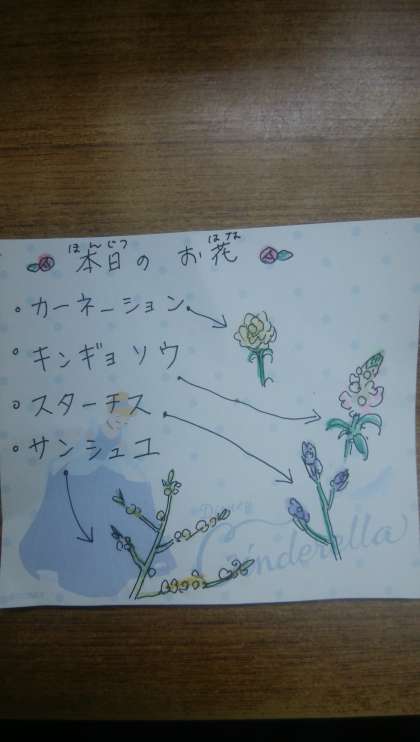 ほんじつ はな
本日の お花
・カーネーション
・キンギョソウ
・スターチス
・サンシュユ
Disney
Cinderella